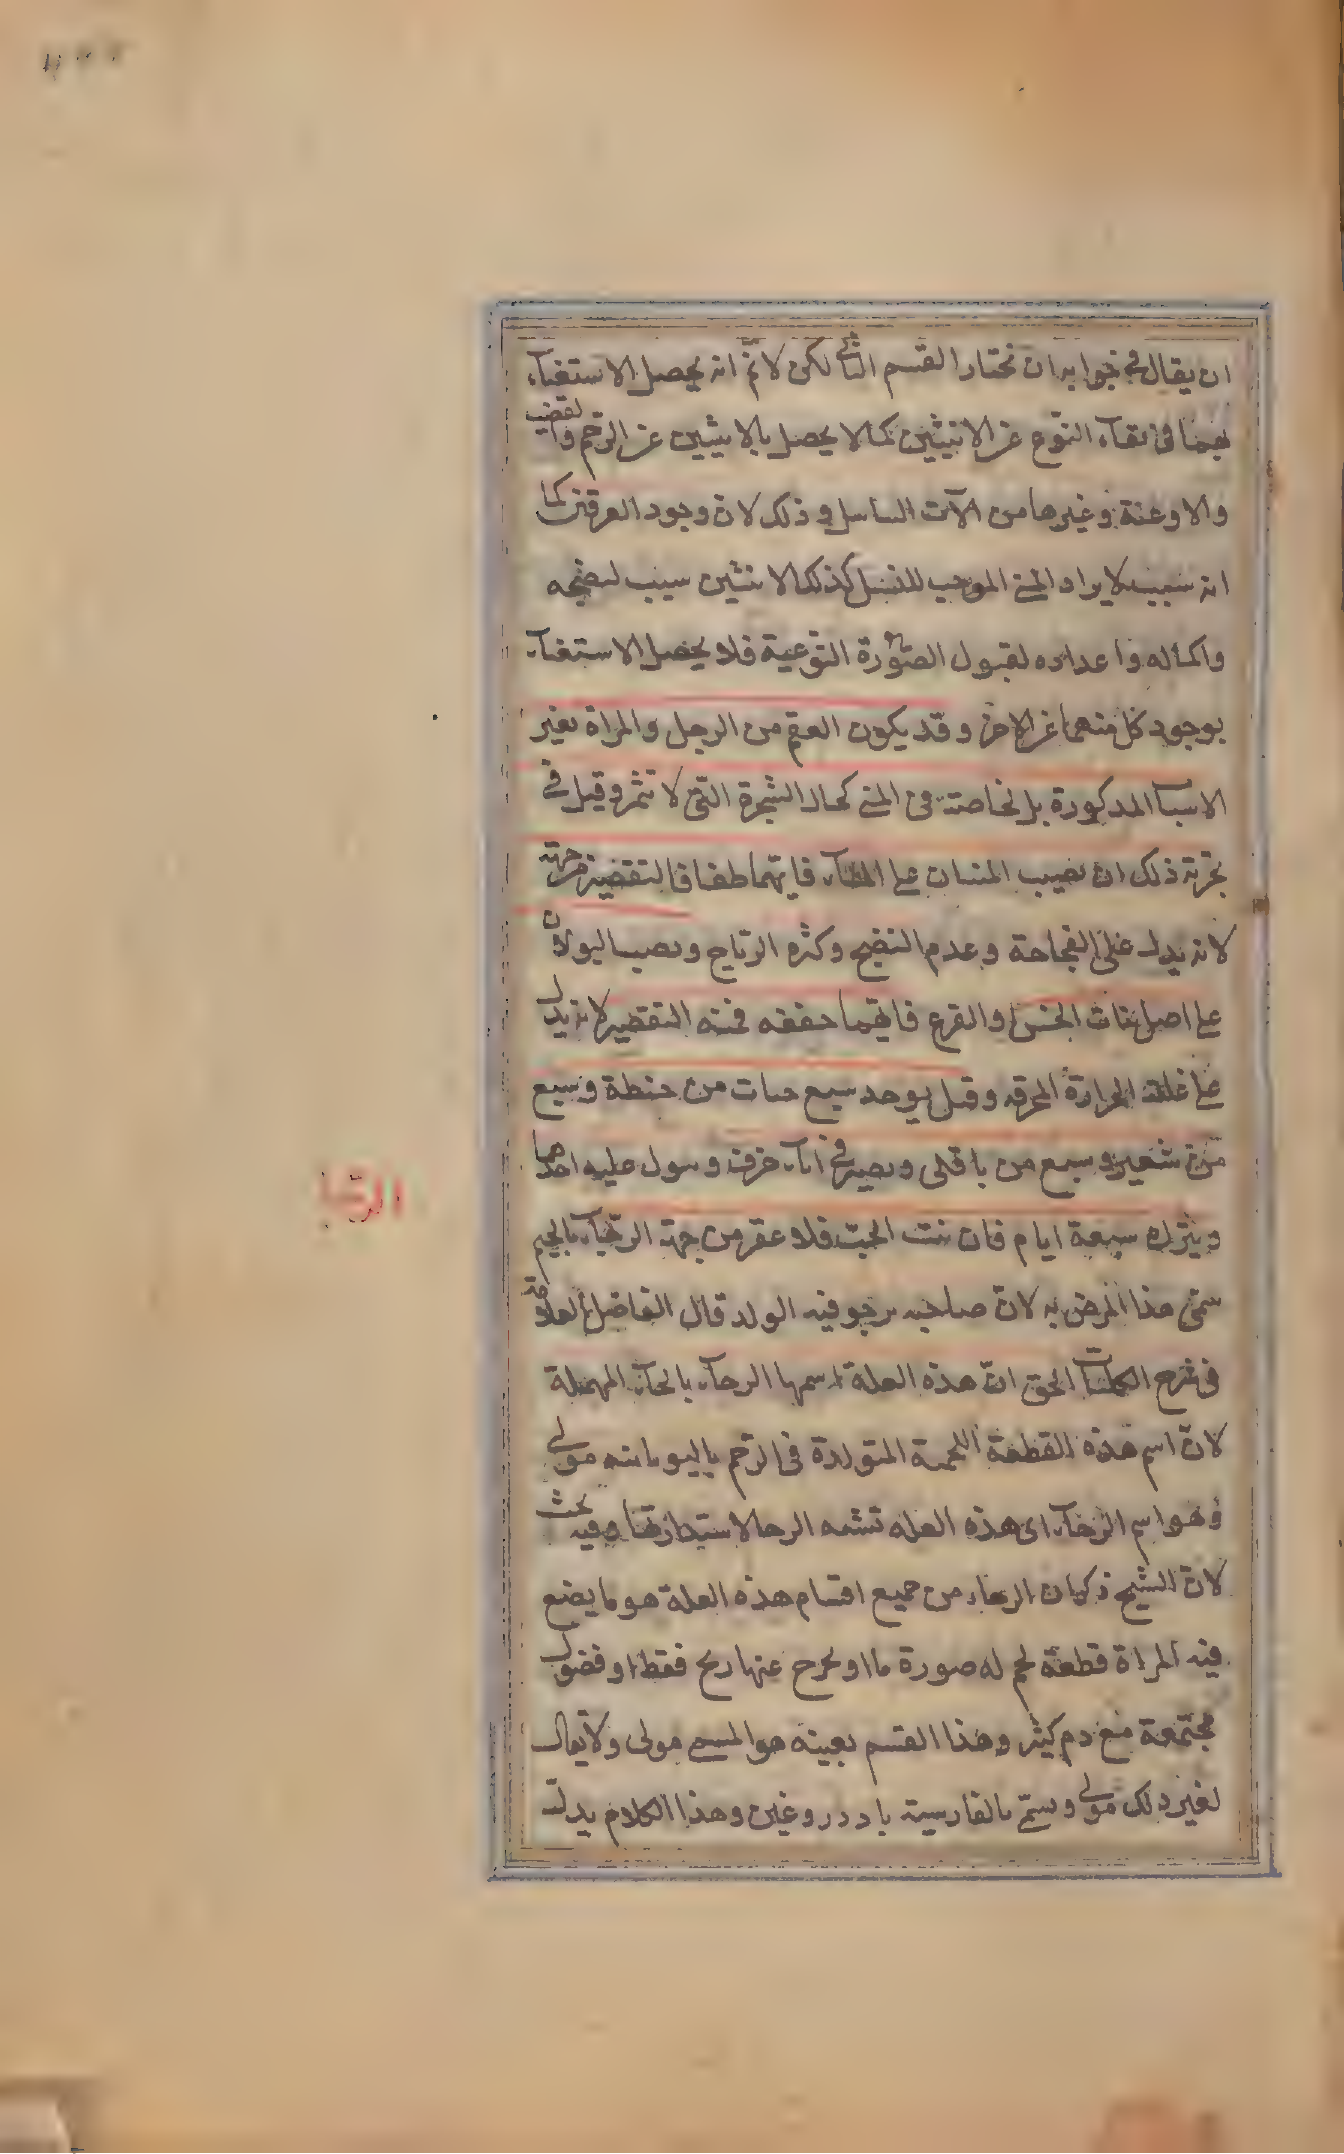 ان يقال في جوابه ان نختار القسم الثاني لكن لا نم انه يحصل الاستغناء
بهما في بقاء النوع عن الانثيين كما لا يحصل بالانثيين عن الرحم والقضيب
والاوعية وغيرها من الآت التناسل وذلك لان وجود العرقين كما
انه سبب لايراد المني الموجب للنسل كذلك الانثيين سبب لنضجه
واكماله واعداده لقبول الصورة النوعية فلا يحصل الاستغناء
بوجود كل منهما عن الاخر وقد يكون العقم من الرجل والمراة بغير
الاسباب المذكورة بل لخاصة في المني كحال الشجرة التي لا تثمر وقيل في
تجربة ذلك ان يصب المنيان على الماء فايهما طفا فالتقصير من جهته
لانه يدل على الفجاجة وعدم النضج وكثره الرياح ويصب البولان
على اصل نبات الخس او القرع فايهما جففه فمنه التقصير لانه يدل
على غلبة الحرارة المحرقه وقيل يوخذ سبع حبات من حنطة وسبع
من شعير وسبع من باقلى ويصير في اناء خزف ويبول عليه احدهما
ويترك سبعة ايام فان نبت الحب فلا عقر من جهته الرجاء بالجيم
سمى هذا المرض به لان صاحبه يرجو فيه الولد قال الفاضل العلامة
في شرح الكليات الحق ان هذه العلة اسمها الرحاء بالحاء المهملة
لان اسم هذه القطعة اللحمية المتولدة في الرحم باليونانيه مولى
وهو اسم الرحاء اى هذه العله تشبه الرحا لاستدارتها وفيه بحث
لان الشيخ ذكر ان الرحاء من جميع اقسام هذه العلة هو ما يضع
فيه المراة قطعة لحم له صورة ما او يخرج عنها ريح فقط او فضول
مجتمعة مع دم كثير وهذا القسم بعينه هو المسمى مولى ولا يقال
لغير ذلك مولى ويسمى بالفارسية باد دروغين وهذا الكلام يدل
الرجا